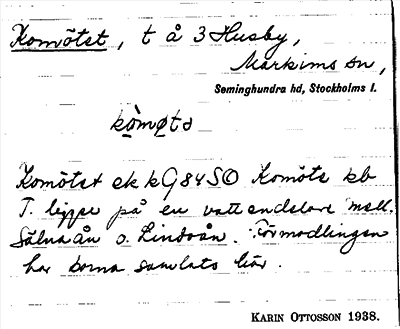 Komötet, t å 3 Husby,
Markims sn,
Seminghundra hd, Stockholms l.
kòmø̣tə
Komötet ek kG84SO Komöte kb
T. ligger på en vattendelare mell.
Sälnaån o. Lindoån. Förmodligen
har korna samlats här.
KARIN OTTOSSON 1938.